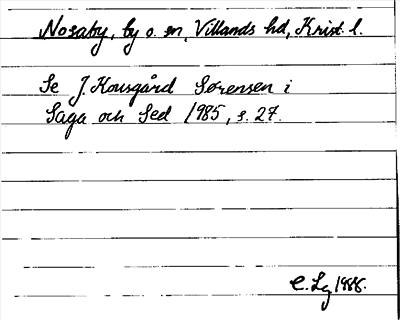 Nosaby, by o. sn, Villands hd, Krist. l.
Se J. Kousgård Sørensen i
Saga och Sed 1985, s. 27.
C. Lg 1988.